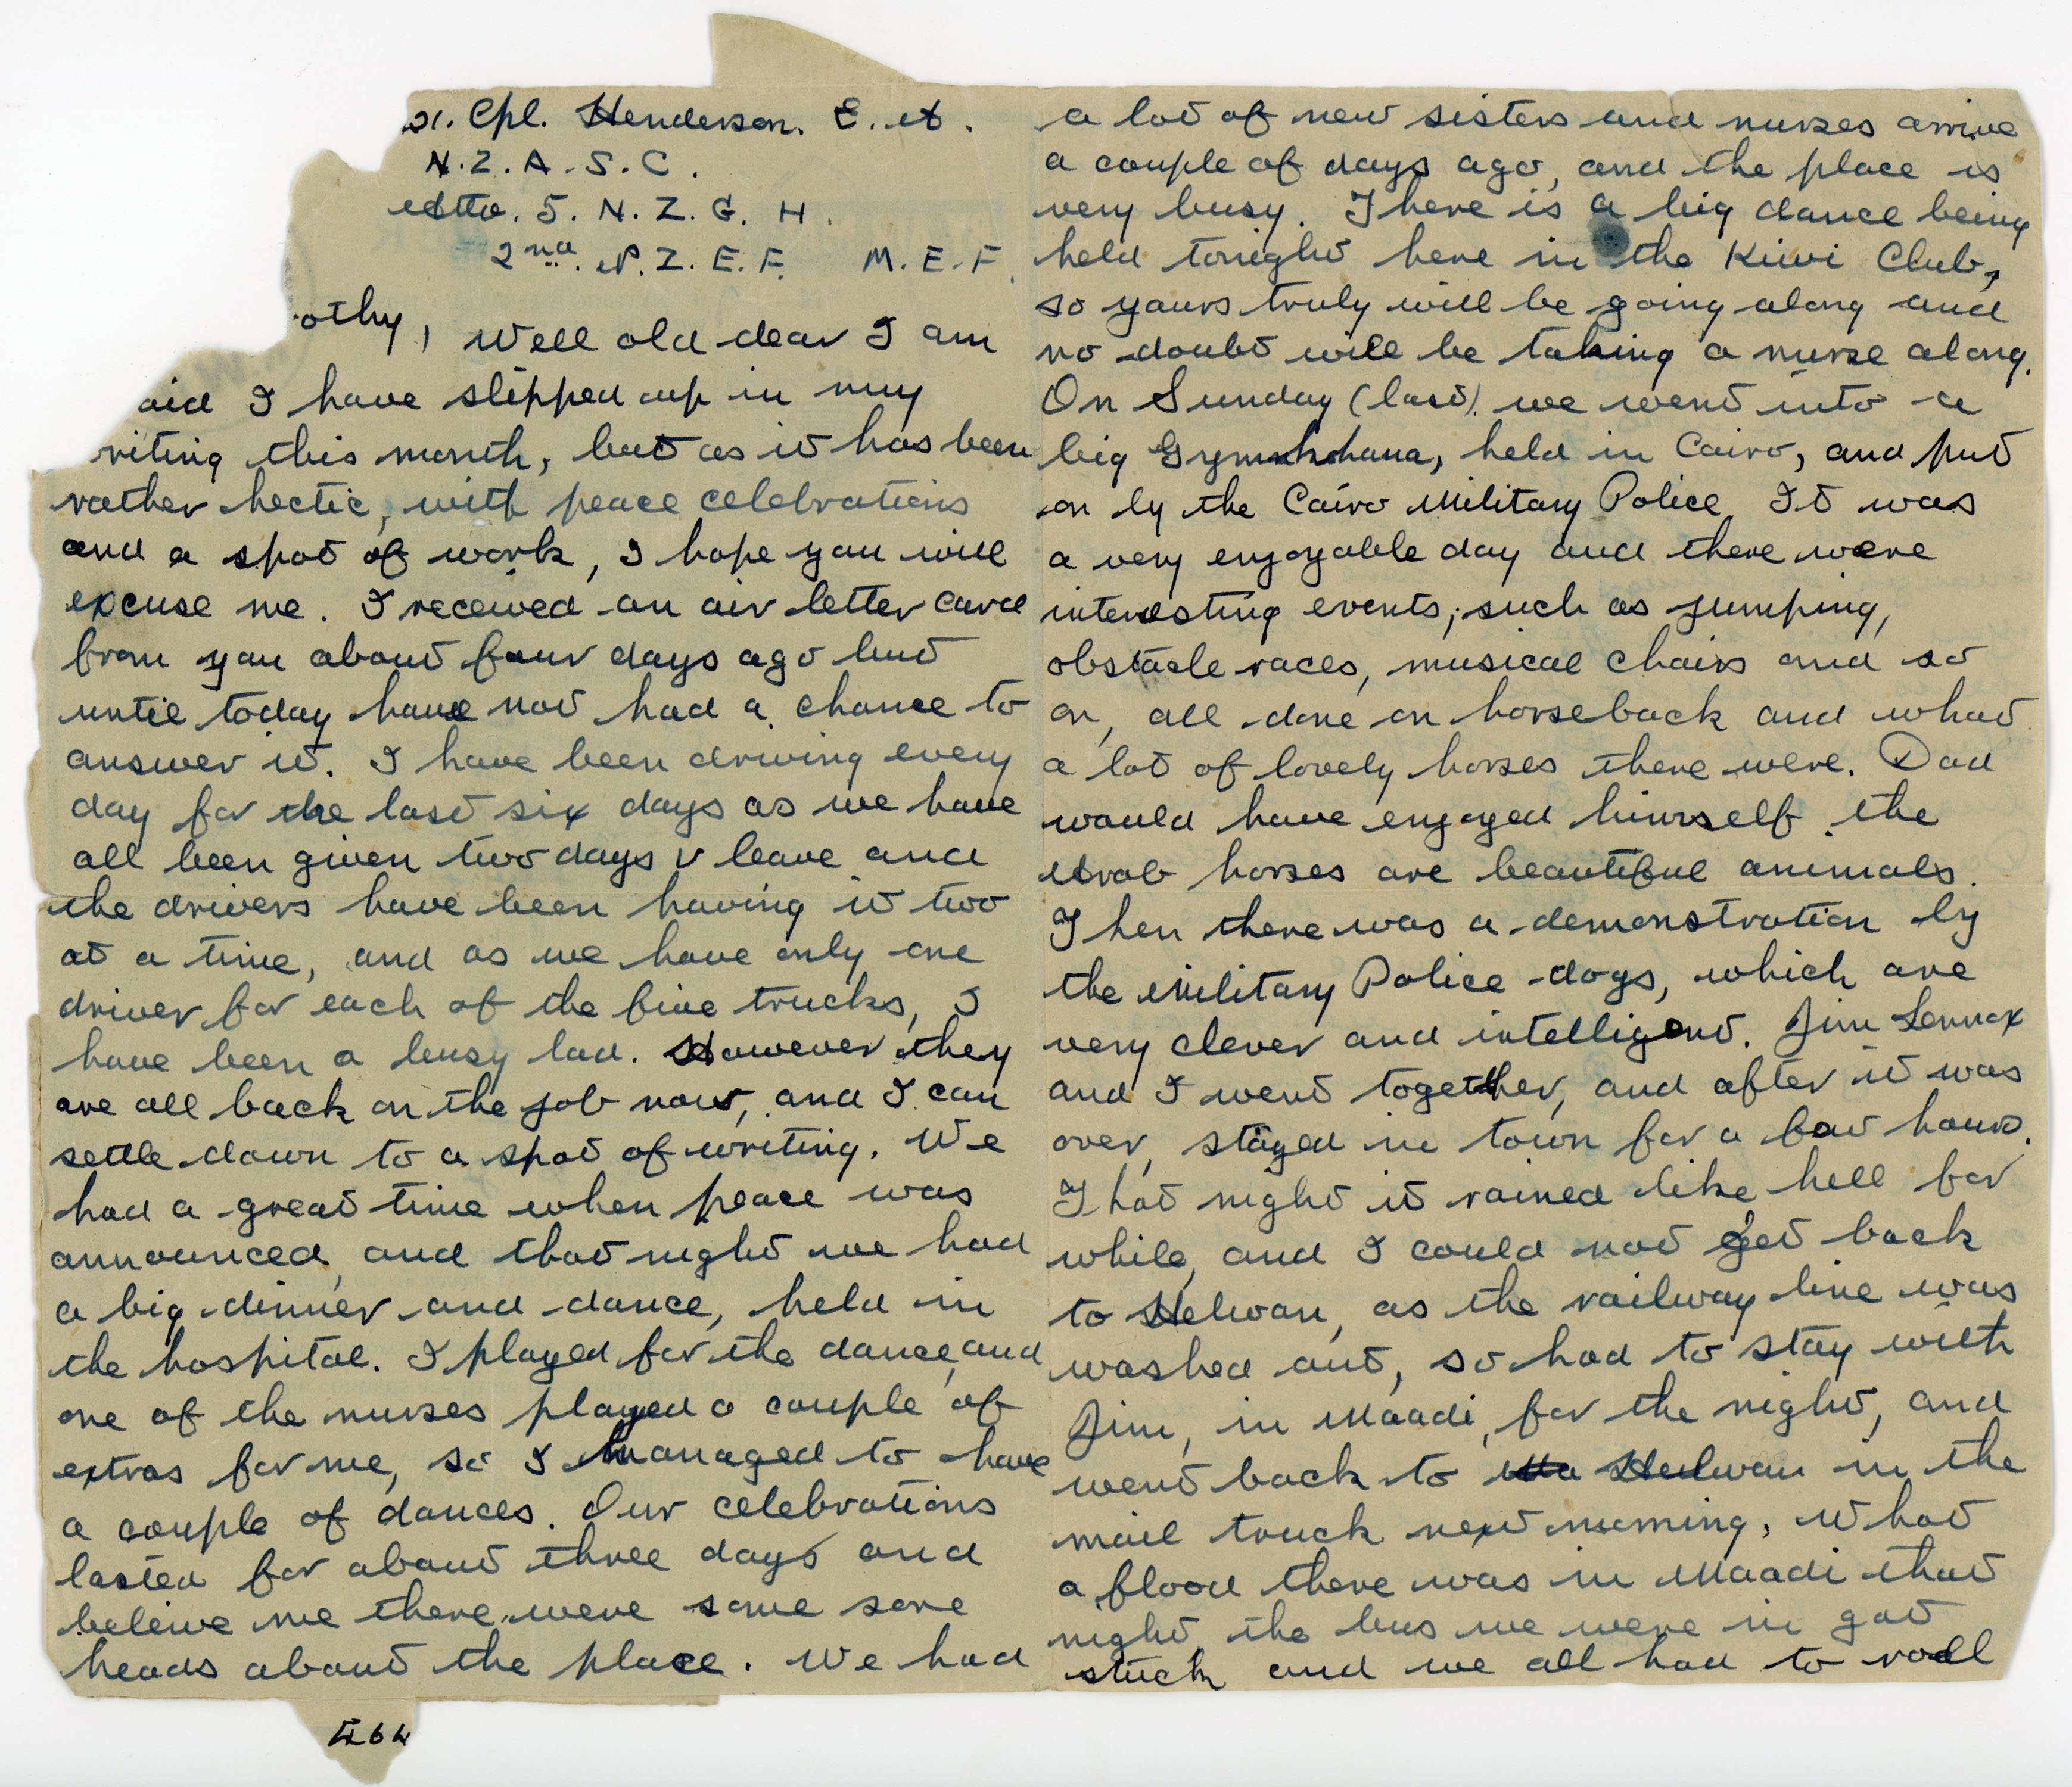 21. Cpl. Henderson. E. A.
N.Z.A.S.C.
Att. 5. N.Z.G.H.
2nd. N.Z.E.F. M.E.F.
othy, Well old dear I am
aid I have slipped up in my
riting this month, but as it has been
rather hectic, with peace celebrations
and a spot of work, I hope you will
excuse me. I received an air letter card
from you about four days ago but
until today have not had a chance to
answer it. I have been driving every
day for the last six days as we have
all been given two days V leave and
the drivers have been having it two
at a time, and as we have only one
driver for each of the five trucks, I
have been a busy lad. However they
are all back on the job now, and I can
settle down to a spot of writing. We
had a great time when peace was
announced, and that night we had
a big dinner and dance, held in
the hospital. I played for the dance, and
one of the nurses played a couple of
extras for me, so I managed to have
a couple of dances. Our celebrations
lasted for about three days and
beleive me there were some sore
heads about the place. We had
464
a lot of new sisters and nurses arrive
a couple of days ago, and the place is
very busy. There is a big dance being
held tonight here in the Kiwi Club,
so yours truly will be going along and
no doubt will be taking a nurse along.
On Sunday (last). we went into a
big Gymnkhana, held in Cairo, and put
on by the Cairo Military Police. It was
a very enjoyable day and there were
interesting events, such as jumping,
obstacle races, musical chairs and so
on, all done on horseback and what
a lot of lovely horses there were. Dad
would have enjoyed himself, the
Arab horses are beautiful animals.
Then there was a demonstration by
the Military Police dogs, which are
very clever and intelligent. Jim Lennox
and I went together, and after it was
over, stayed in town for a few hours.
That night it rained like hell for
while, and I could not get back
to Helwan, as the railway line was
washed out, so had to stay with
Jim, in Maadi, for the night, and
went back to Ma Helwan in the
mail truck next morning. What
a flood there was in Maadi that
night, the bus we were in got
stuck and we all had to roll